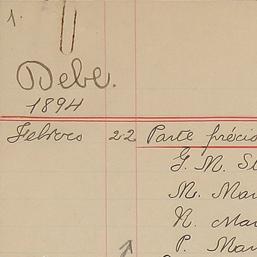 1.
Debe.
1894
Febrero 22 Parte précio
G. M.
M. Mar
N. Mar
P. Mar